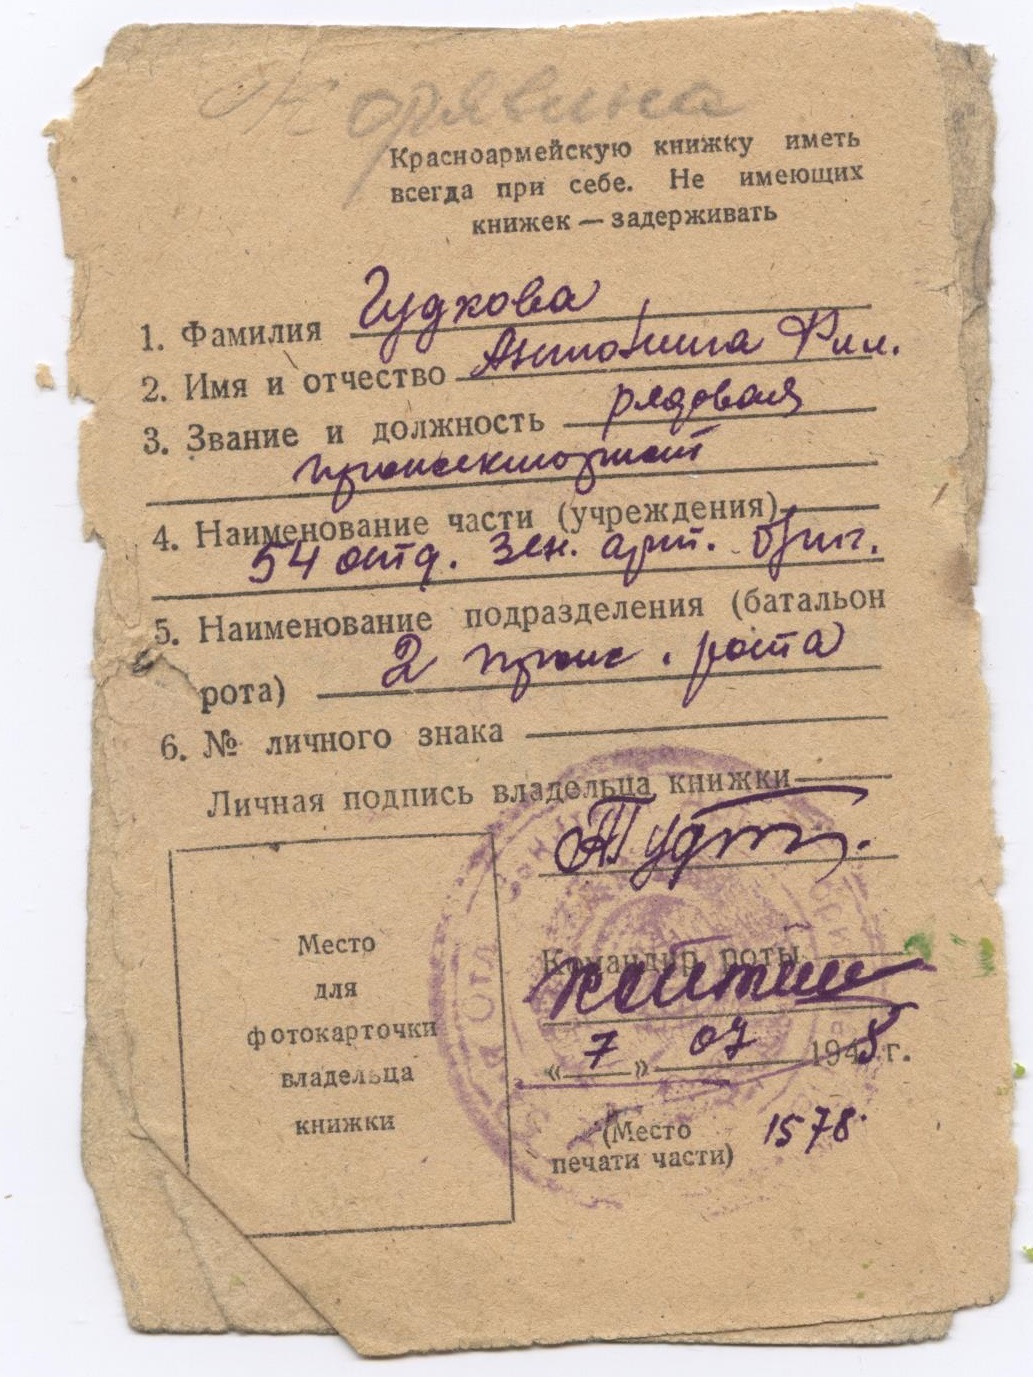 Корявина
Красноармейскую книжку иметь
всегда при себе. Не имеющих
книжек — задерживать
1. Фамилия Гудкова
2. Имя и отчество Антонина Фил.
3. Звание и должность рядовая
прожекторист
4. Наименование части (учреждения)
54 отд. зен. арт. бриг.
5. Наименование подразделения (батальон
рота) 2 прож. рота
6. № личного знака
Личная подпись владельца книжки
Место
для
фотокарточки
владельца
книжки
Командир роты
«7» 07 194 г.
(Место
печати части)
1578